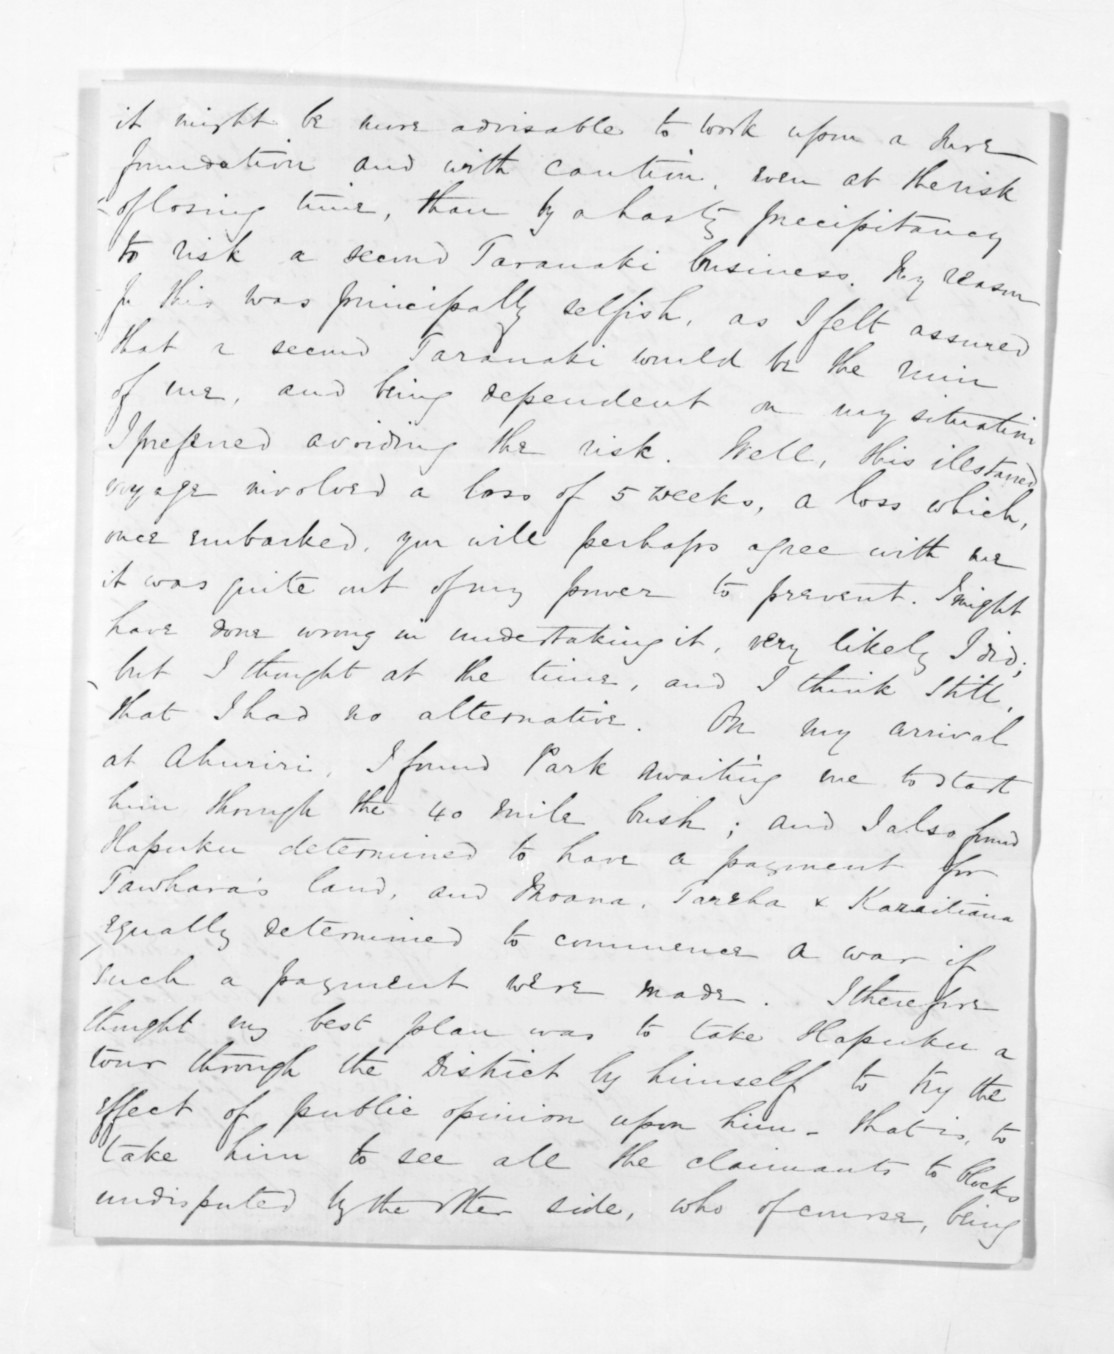 it might be more advisable to work upon a sure
foundation and with caution, even at the risk
of losing time, than by a hasty precipitancy
to risk a second Taranaki business. My reason
for this was principally selfish, as I felt assured
that a second Taranaki would be the ruin
of me, and being dependent on my situation
I preferred avoiding the risk. Well, this illstarred
voyage involved a loss of 5 weeks, a loss which,
once embarked, you will perhaps agree with me
it was quite out of my power to prevent. I might
have done wrong in undertaking it, very likely I did;
but I thought at the time, and I think still,
that I had no alternative. On my arrival
at Ahuriri, I found Park awaiting me to start
him through the 40 mile bush; and I also found
Hapuku determined to have a payment for
Tawhara's land, and Moana, Tareha & Karaitiana
equally determined to commence a war if
such a payment were made. I therefore
thought my best plan was to take Hapuku a
tour through the District by himself to try the
effect of public opinion upon him - that is, to
take him to see all the claimants to blocks
undisputed by the other side, who of course, being